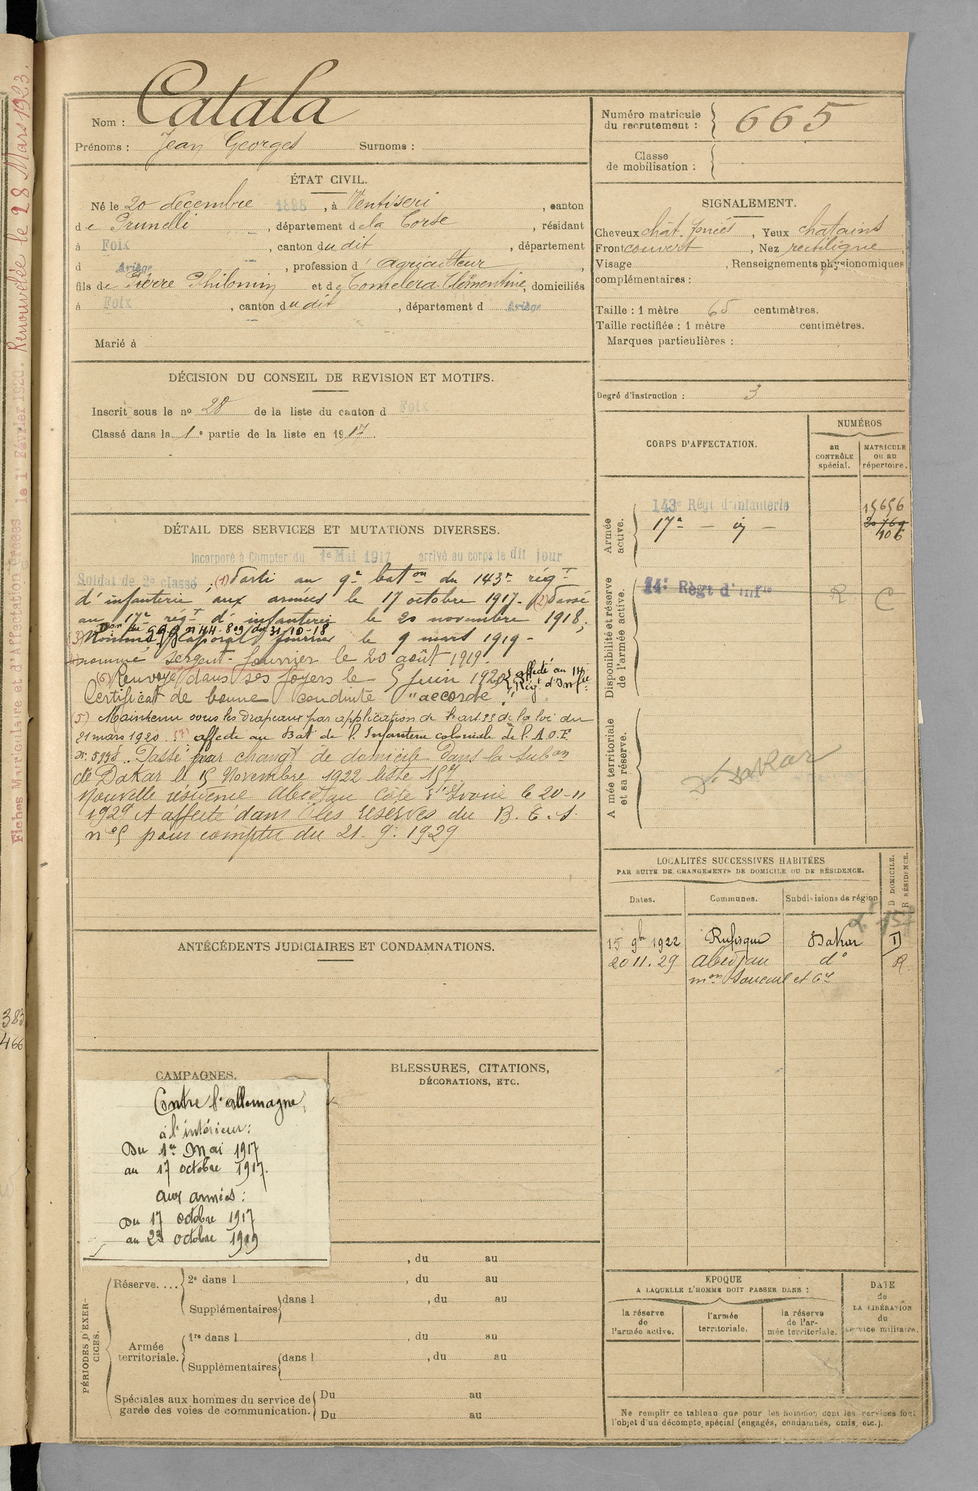 Catala
Nom :
Prénoms : Jean Georges Surnoms :
ÉTAT CIVIL.
Né le 20 décembre 1898, à Ventiseri, canton
de Prunelli, département de la Corse, résidant
à Foix, canton dudit, département
d Ariège, profession d'agriculteur,
fils de Pierre Philomin et de Clémentine, domiciliés
à Foix, canton dudit, département d Ariège
Marié à
DÉCISION DU CONSEIL DE REVISION ET MOTIFS.
Inscrit sous le no 28 de la liste du canton d Foix
Classé dans la 1e partie de la liste en 1917.
DÉTAIL DES SERVICES ET MUTATIONS DIVERSES.
Incorporé à Compter du 1er Mai 1917 arrivé au corps le dit jour
Soldat de 2e classe (1) Parti au 9e baton du 143e régt
d'infanterie aux armées le 17 octobre 1917- (2) passé
au 17e régt d'infanterie le 20 novembre 1918;
31-10-18
(3) Nommé Caporal fourrier le 9 mars 1919-
nommé sergent-fourrier le 20 août 1919-
(6) Renvoyé dans ses foyers le 5 juin 1920 affecté au 14e
Régt d'Infie
Certificat de bonne conduite "accordé".
(5) Maintenu sous les drapeaux par application de l'art 33 de la loi du
21 mars 1920 (7) affecté au Bat de l'Infanterie coloniale de l'A.O.F.
Passé par changt de domicile dans la subon
de Dakar le 15 Novembre 1922 liste 157
Nouvelle résidence Abidjan Côte d'Ivoire le 20-11
1929 et affecté dans les réserves du B. E. S.
n°5 pour compter du 21. 9. 1929
ANTÉCÉDENTS JUDICIAIRES ET CONDAMNATIONS.
CAMPAGNES.
Contre l'allemagne,
à l'intérieur:
Du 1er Mai 1917
au 17 octobre 1917.
aux armées:
Du 17 octobre 1917
au 23 octobre 1919
BLESSURES, CITATIONS,
DÉCORATIONS, ETC.
PÉRIODES D'EXERCICES.
, du au
Réserve.... 2e dans l , du au
Supplémentaires dans l , du au
Armée
territoriale.
1re dans l , du au
Supplémentaires dans l , du au
Spéciales aux hommes du service de
garde des voies de communication.
Du au
Du au
Numéro matricule
du recrutement : 665
Classe
de mobilisation :
SIGNALEMENT.
Cheveux chât. foncés, Yeux châtains
Front couvert, Nez rectiligne
Visage , Renseignements physionomiques
complémentaires :
Taille : 1 mètre 65 centimètres.
Taille rectifiée : 1 mètre centimètres.
Marques particulières :
Degré d'instruction : 3
CORPS D'AFFECTATION.
NUMÉROS
au
CONTRÔLE
spécial.
MATRICULE
OU AU
répertoire.
Armée
active.
143e Régt d'infanterie 15656
17e - ij - 106
Disponibilité et réserve
de l'armée active.
14e Régt d'Infie R C
Armée territoriale
et sa réserve.
Dakar
LOCALITÉS SUCCESSIVES HABITÉES
PAR SUITE DE CHANGEMENTS DE DOMICILE OU DE RÉSIDENCE.
D DOMICILE.
R RÉSIDENCE.
Dates. Communes. Subdivisions de région
15 9bre 1922 Rufisque Dakar D
20 11. 29 Abidjan d° R
ÉPOQUE
A LAQUELLE L'HOMME DOIT PASSER DANS :
la réserve
de
l'armée active.
l'armée
territoriale.
la réserve
de l'ar-
mée territoriale.
DATE
de
LA LIBÉRATION
du
service militaire.
Ne remplir ce tableau que pour les hommes dont les services font
l'objet d'un décompte spécial (engagés, condamnés, omis, etc.).
Fiches Matriculaire et d'Affectation créées le 1er Février 1920. Renouvelée le 28 Mars 1923.
383
466